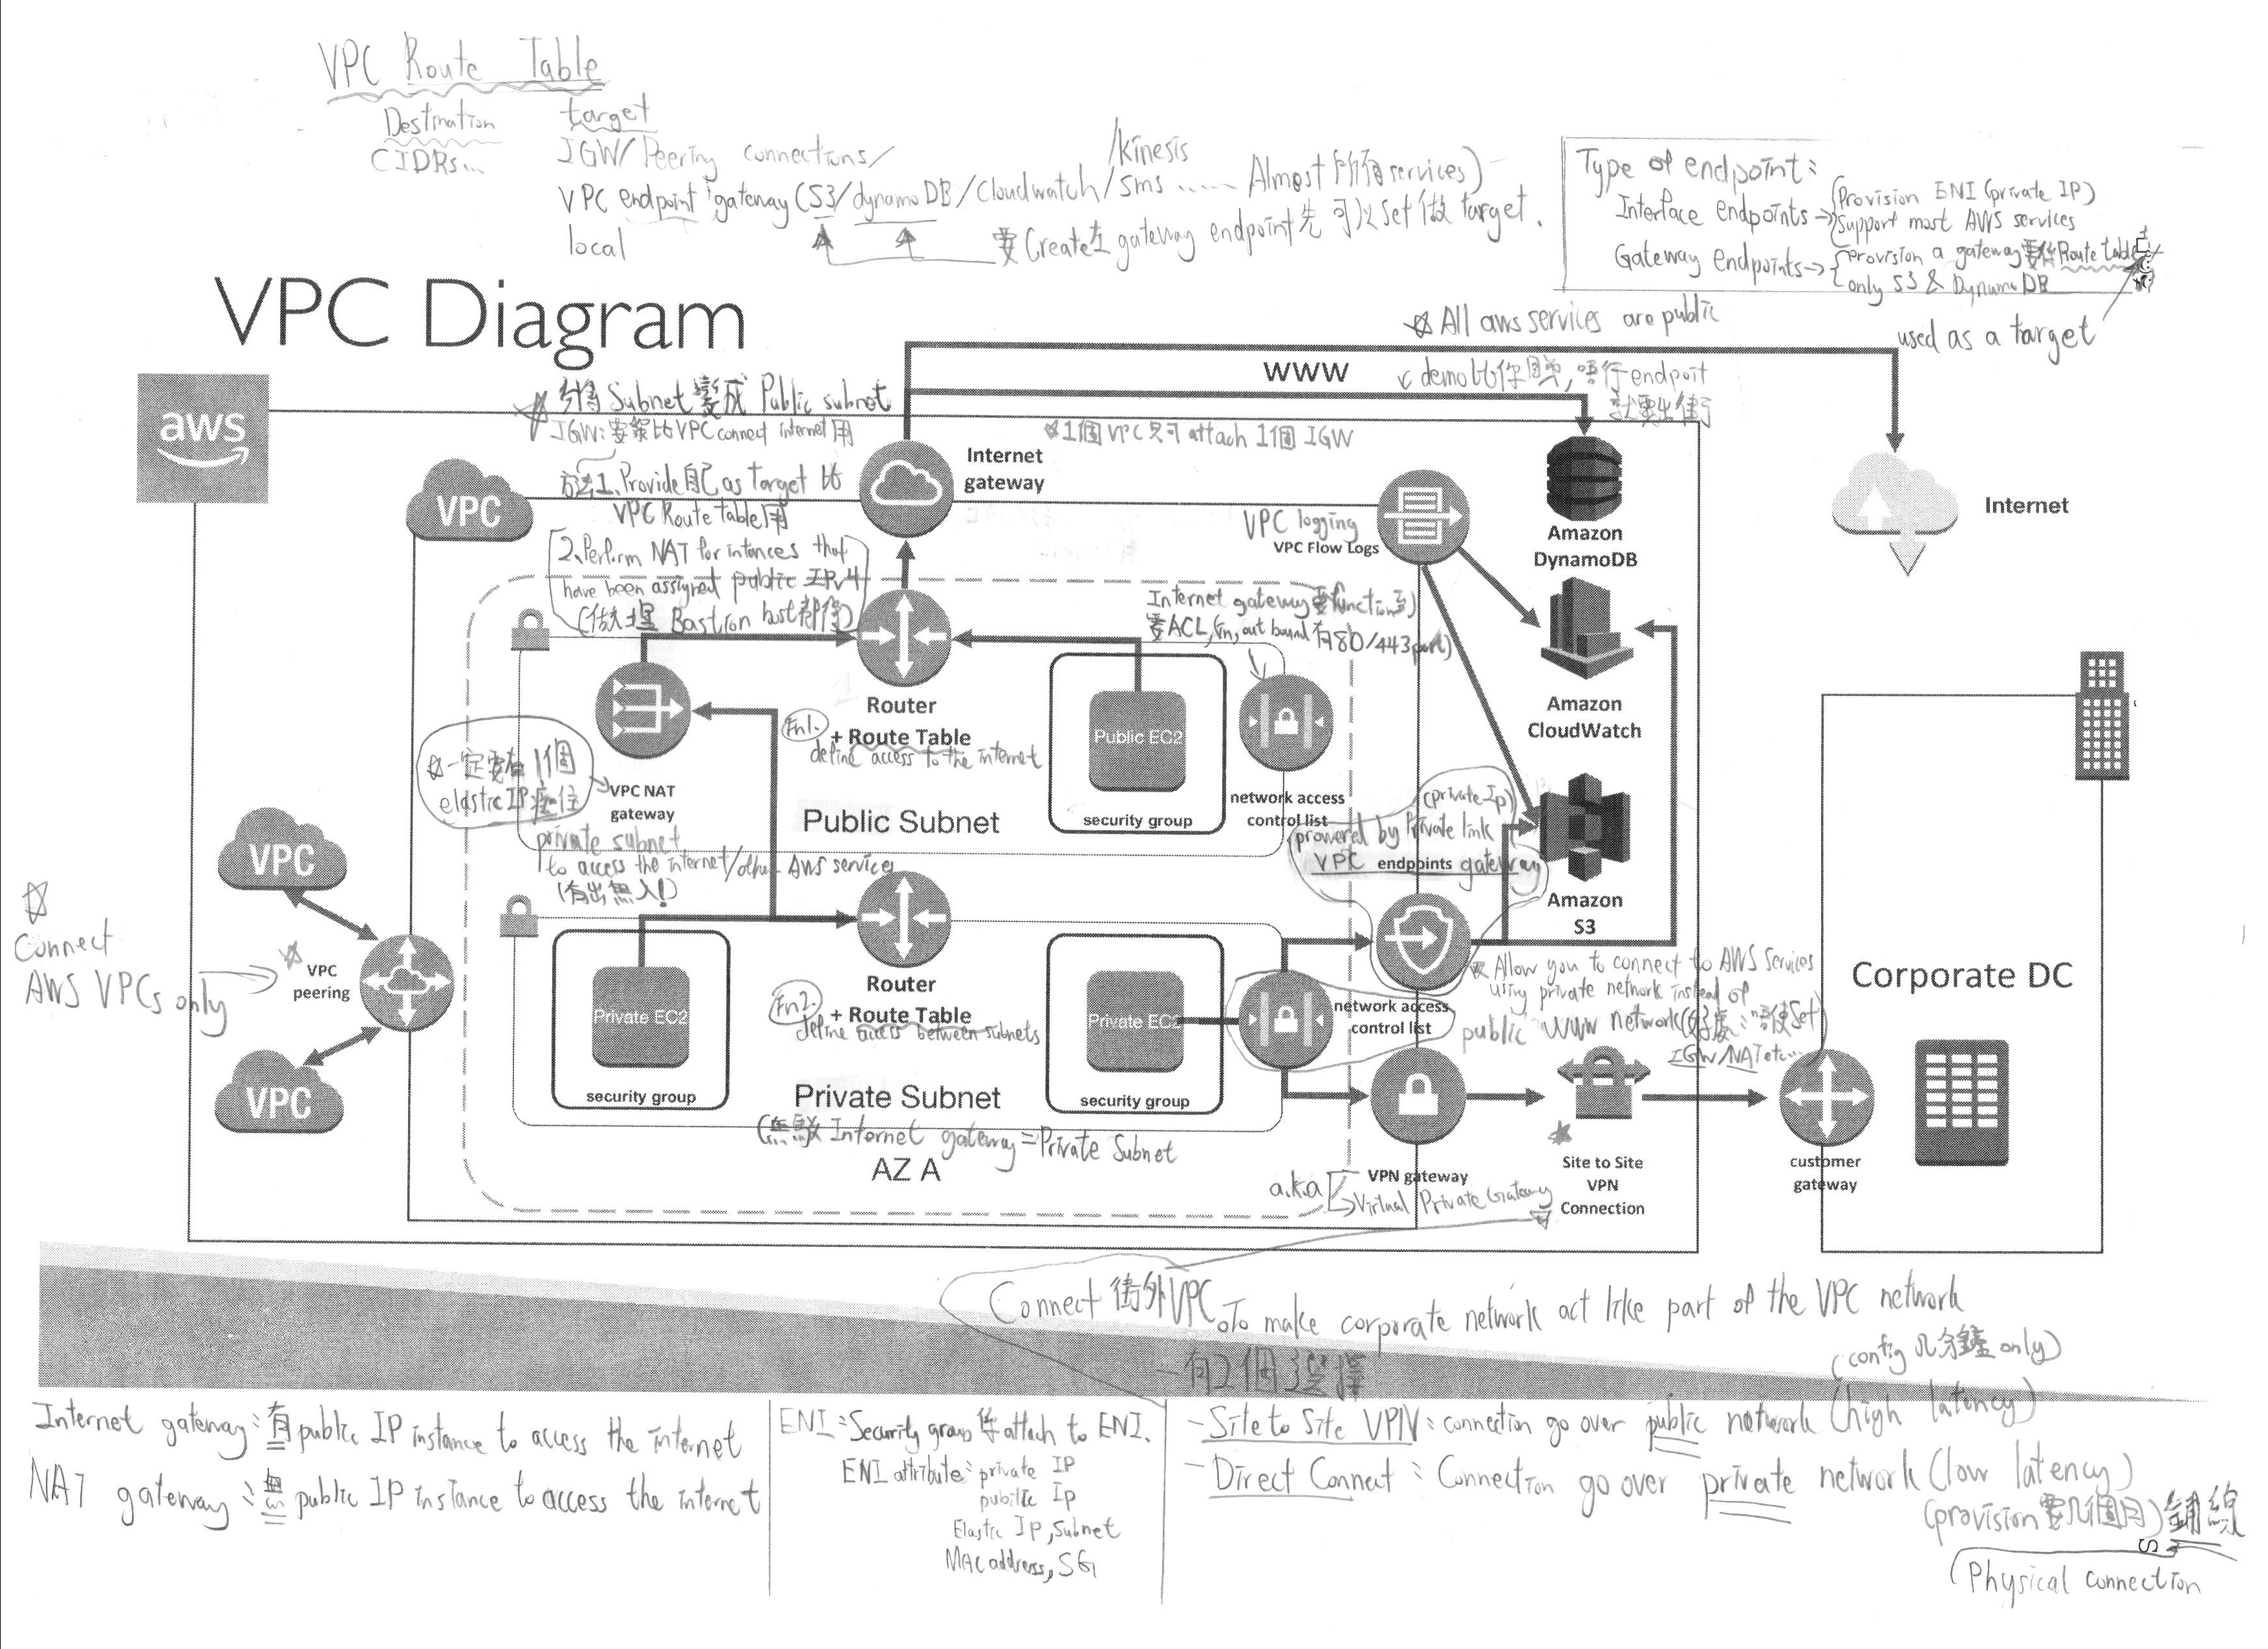 VPC Route Table
Destination target
CIDRs... IGW/Peering connections/
/kinesis
VPC endpoint gateway (S3/dynamoDB/Cloudwatch/sms ...... Almost 所有services)
local
要Create左gateway endpoint先可以Set做target.
Type of endpoint:
Interface endpoints→
Provision ENI (private IP)
Support most AWS services
Gateway endpoints→
provision a gateway要係Route table
only S3 & DynamoDB
used as a target
VPC Diagram
All aws services are public
www
demo比你睇, 唔行endpoint
就要出街
aws
Subnet變成Public subnet
IGW: 要比VPC connect internet用
1個VPC只可attach 1個IGW
Internet
gateway
VPC
方法1. Provide自己as Target比
VPC Route table用
2. Perform NAT for intances that
have been assigned public IPv4
(做埋Bastion host都係)
VPC logging
VPC Flow Logs
Amazon
DynamoDB
Internet
Internet gateway要function到
要ACL, (in, out bound有80/443 port)
Amazon
CloudWatch
Router
+ Route Table
Fn1.
define access to the internet
Public EC2
security group
network access
control list
一定要有1個
elastic IP
VPC NAT
gateway
private subnet
to access the internet/other AWS services
(有出無入!)
Public Subnet
(private Ip)
prowered by Private link
VPC endpoints gateway
Amazon
S3
VPC
Connect
AWS VPCs only
VPC
peering
VPC
Router
+ Route Table
Fn2.
define access between subnets
Private EC2
security group
Private EC2
security group
network access
control list
Allow you to connect to AWS Services
using private network instead of
public www network(好處: 唔使Set
IGW/NAT etc...
Corporate DC
Private Subnet
Internet gateway = Private Subnet
AZ A
VPN gateway
a.k.a
Virtual Private Gateway
Site to Site
VPN
Connection
customer
gateway
Connect 街外VPC
To make corporate network act like part of the VPC network
-有2個選擇
(config 几分鐘 only)
Internet gateway: 有public IP instance to access the internet
NAT gateway: 無public IP instance to access the internet
ENI: Security group係attach to ENI.
ENI attribute: private IP
pubilic Ip
Elastic IP, Subnet
MAC address, SG
-Site to Site VPN: connection go over public network (high latency)
-Direct Connect: Connection go over private network (low latency)
(provision要几個月) 鋪線
Physical connection